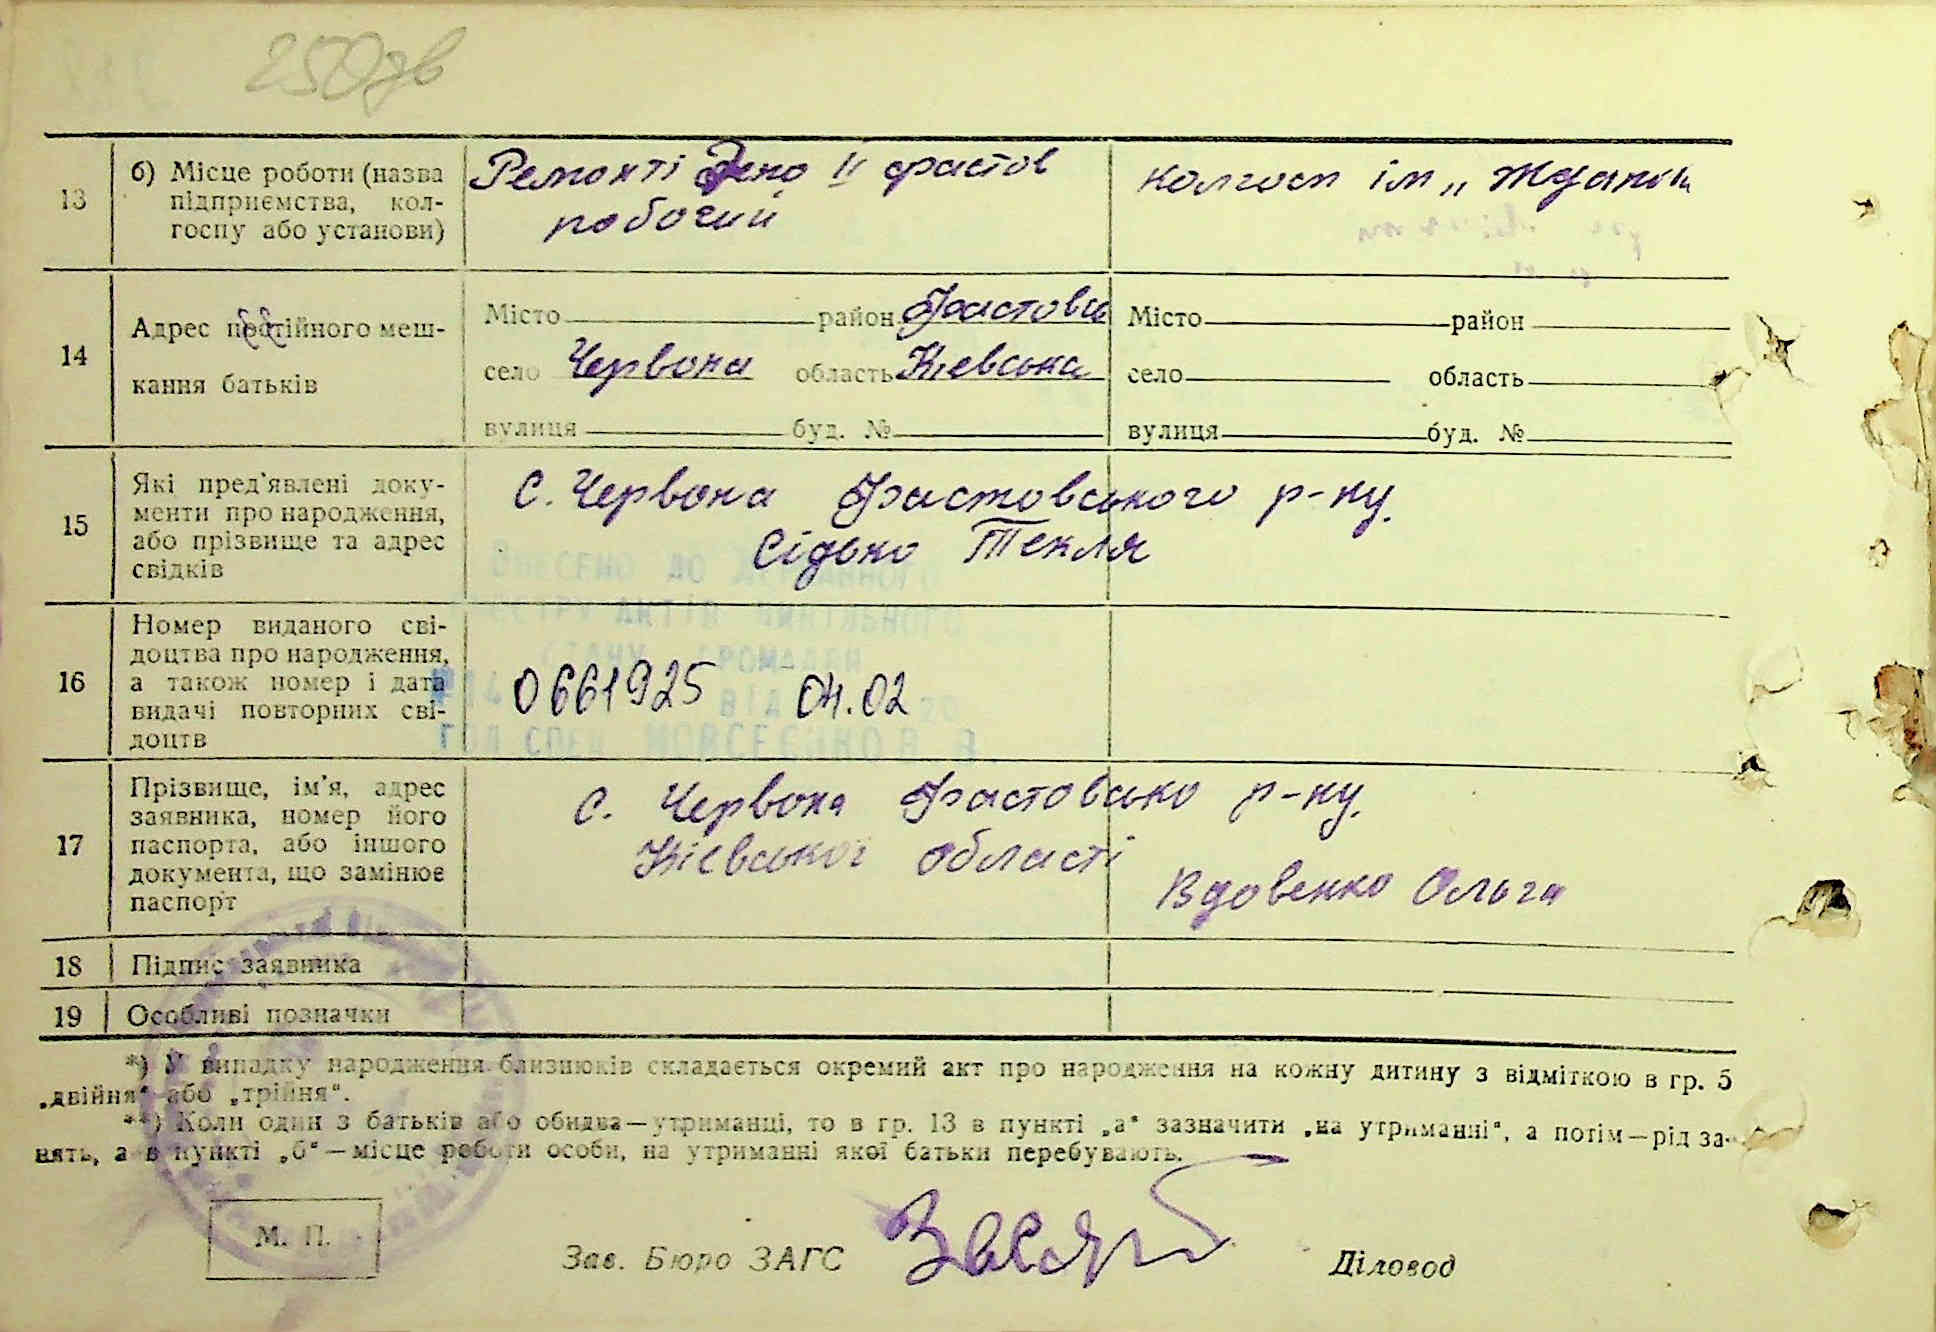 250
13 б) Місце роботи (назва підприємства, кол-госпу або установи)
Ремонті Депо II фастов
робочий
колгосп ім „ Жданова
14 Адрес постійного меш-
кання батьків
Місто район Фастовс
село Червона область Київська
вулиця буд. №
Місто район
село область
вулиця буд. №
15 Які пред'явлені доку-
менти про народження,
або прізвище та адрес
свідків
С. Червона Фастовського р-ну.
Сідько Текля
ВНЕСЕНО ДО ДЕРЖАВНОГО
РЕЄСТРУ АКТІВ ЦИВІЛЬНОГО
СТАНУ ГРОМАДЯН
16 Номер виданого сві-
доцтва про народження,
а також номер і дата
видачі повторних сві-
доцтв
0661925 04.02
17 Прізвище, ім'я, адрес
заявника, номер його
паспорта, або іншого
документа, що замінює
паспорт
С. Червона Фастовсько р-ну.
Київської області
Вдовенко Ольга
18 Підпис заявника
19 Особливі позначки
*) У випадку народження близнюків складається окремий акт про народження на кожну дитину з відміткою в гр. 5
„двійня“ або „трійня“.
**) Коли один з батьків або обидва—утриманці, то в гр. 13 в пункті „а“ зазначити „на утриманні“, а потім—рід за-
нять, а в пункті „б“—місце роботи особи, на утриманні якої батьки перебувають.
М. П.
Зав. Бюро ЗАГС
Діловод